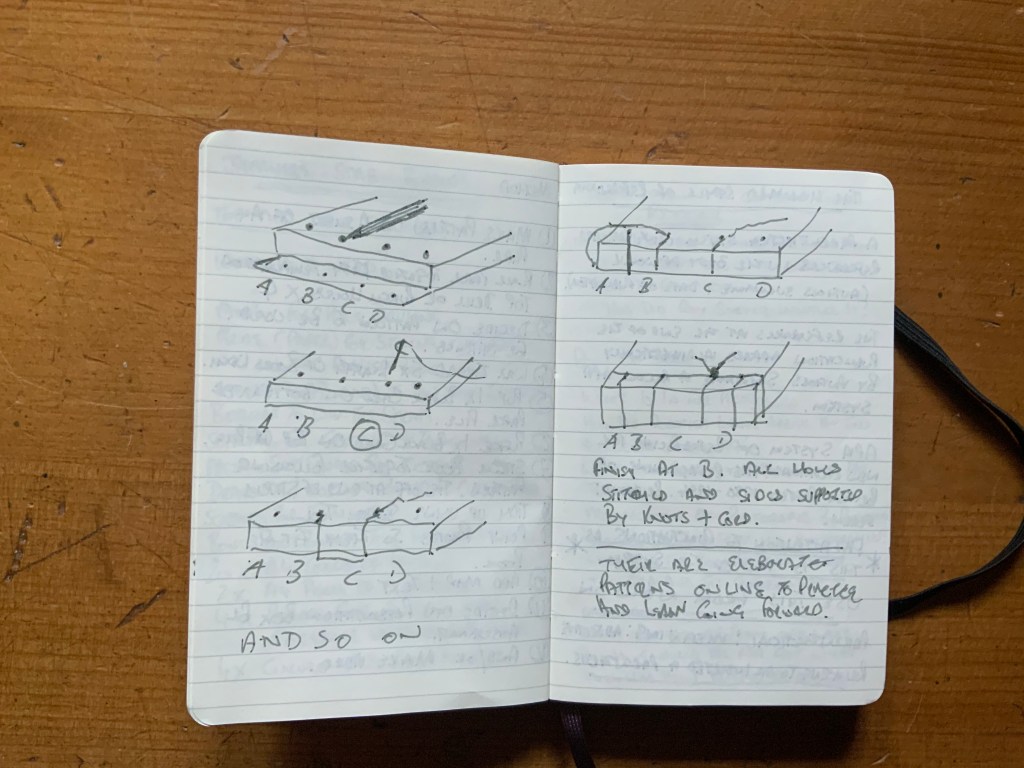 A B C D
A B C D
A B C D
AND SO ON
A B C D
A B C D
FINISH AT B. ALL HOLES
STITCHED AND SIDES SUPPORTED
BY KNOTS + CORD.
THEIR ARE ELEBORATET
PATTERNS ONLINE TO PRACTICE
AND LEARN GOING FORWARD.